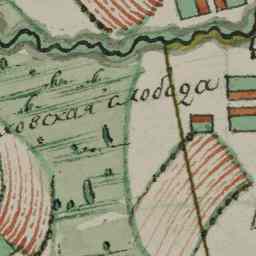 ховская слобода